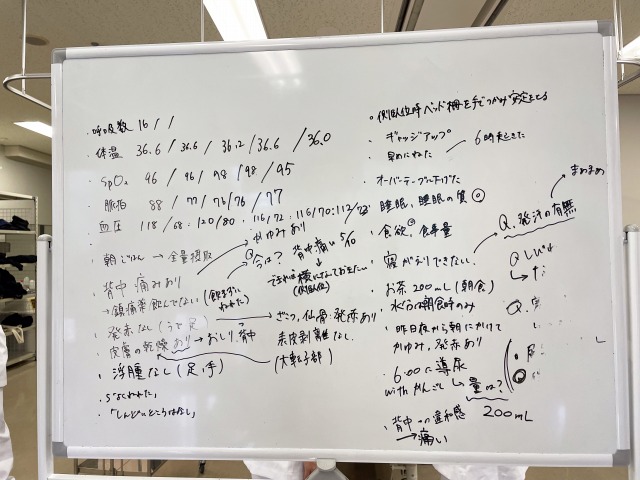 ・呼吸数 16 / /
・体温 36.6 / 36.6 / 36.2 / 36.6 / 36.0
・SpO₂ 96 / 96 / 98 / 98 / 95
・脈拍 88 / 77 / 76 / 76 / 77
・血圧 118/68・120/80・116/72・116/70・112/72
・朝ごはん → 全量摂取
かゆみあり
・背中 痛みあり
今は? 背中痛い 5/10
→鎮痛薬飲んでない
できれば横になっておきたい
(側臥位)
・発赤なし(うで 足)
ざこつ,仙骨・発赤あり
皮膚の乾燥 あり → おしり,背中
表皮剥離なし
(大転子部)
・浮腫なし(足,手)
S"よくねれた"
・「しんどいところはなし」
・側臥位時ベッド柵を手でつかみ安定してる
・ギャッジアップ
・早めにねた
6時起きた
・オーバーテーブル下げた
・睡眠,睡眠の質 ◎
・食欲,食事量
・寝がえりできない
・お茶 200mL(朝食)
・水分は朝食時のみ
・昨日夜から朝にかけて
かゆみ,発赤あり
・6:00に導尿
with かんごし → 量は?
200mL
・背中の違和感
→痛い
まあまあ
Q.発汗の有無
Q
Q.